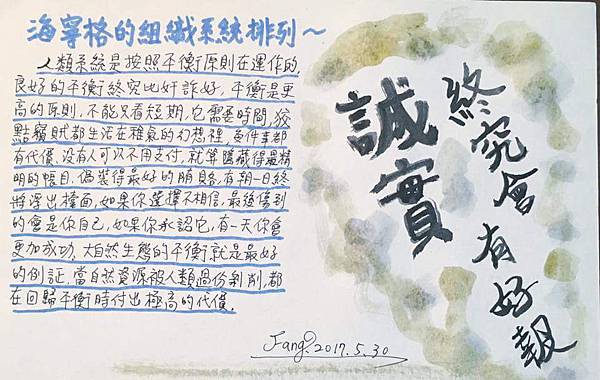 海寧格的組織系統排列～
人類系統是按照平衡原則在運作的,
良好的平衡終究比奸詐好。平衡是更
高的原則,不能只看短期,它需要時間,狡
黠竊賊都生活在稚氣的幻想裡,每件事都
有代價。沒有人可以不用支付,就算隱藏得最精
明的帳目,偽裝得最好的賄賂,有朝一日終
將浮出檯面。如果你選擇不相信,最後傷到
的會是你自己,如果你承認它,有一天你會
更加成功。大自然生態的平衡就是最好
的例証。當自然資源被人類過份剝削,都
在回歸平衡時付出極高的代價。
Fang. 2017.5.30
誠實
終究會有好報